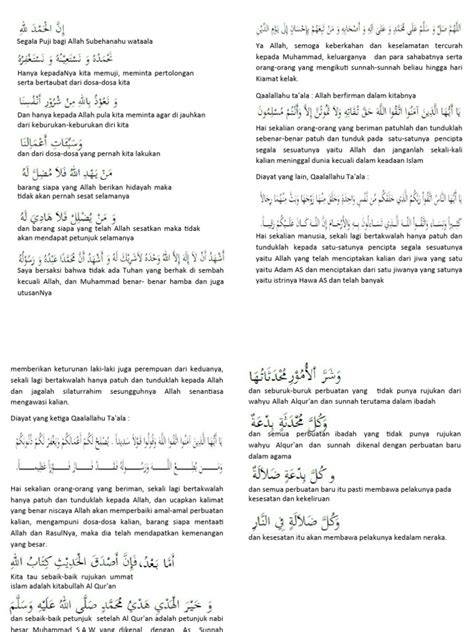 إِنَّ الْحَمْدَ لِلَّهِ
Segala Puji bagi Allah Subehanahu wataala
نَحْمَدُهُ وَ نَسْتَعِيْنُهُ وَ نَسْتَغْفِرُهُ
Hanya kepadaNya kita memuji, meminta pertolongan
serta bertaubat dari dosa-dosa kita
وَ نَعُوْذُ بِاللهِ مِنْ شُرُوْرِ أَنْفُسِنَا
Dan hanya kepada Allah pula kita meminta agar di jauhkan
dari keburukan-keburukan diri kita
وَسَيِّئَاتِ أَعْمَالِنَا
dan dari dosa-dosa yang pernah kita lakukan
مَنْ يَهْدِ اللهُ فَلَا مُضِلَّ لَهُ
barang siapa yang Allah berikan hidayah maka
tidak akan pernah sesat selamanya
وَ مَنْ يُضْلِلْ فَلَا هَادِيَ لَهُ
dan barang siapa yang telah Allah sesatkan maka tidak
akan mendapat petunjuk selamanya
أَشْهَدُ أَنْ لَا إِلَهَ إِلَّا اللهُ وَحْدَهُ لَا شَرِيْكَ لَهُ وَ أَشْهَدُ أَنَّ مُحَمَّدًا عَبْدُهُ وَ رَسُوْلُهُ
Saya bersaksi bahwa tidak ada Tuhan yang berhak di sembah
kecuali Allah, dan Muhammad benar- benar hamba dan juga
utusanNya
اللَّهُمَّ صَلِّ وَ سَلِّمْ عَلَى مُحَمَّدٍ وَ عَلَى آلِهِ وَ أَصْحَابِهِ وَ مَنْ تَبِعَهُمْ بِإِحْسَانٍ إِلَى يَوْمِ الدِّيْنِ
Ya Allah, semoga keberkahan dan keselamatan tercurah
kepada Muhammad, keluarganya dan para sahabatnya serta
orang-orang yang mengikuti sunnah-sunnah beliau hingga hari
Kiamat kelak.
Qaalallahu ta'ala : Allah berfirman dalam kitabnya
يَا أَيُّهَا الَّذِيْنَ آمَنُوْا اتَّقُوْا اللهَ حَقَّ تُقَاتِهِ وَلَا تَمُوْتُنَّ إِلَّا وَأَنْتُمْ مُسْلِمُوْنَ
Hai sekalian orang-orang yang beriman patuhlah dan tunduklah
sebenar-benar patuh dan tunduk pada satu-satunya pencipta
segala sesuatu yaitu Allah dan janganlah sekali-kali kalian
meninggal dunia kecuali dalam keadaan Islam
Diayat yang lain, Qaalallahu Ta'ala :
يَا أَيُّهَا النَّاسُ اتَّقُوْا رَبَّكُمُ الَّذِيْ خَلَقَكُمْ مِنْ نَفْسٍ وَاحِدَةٍ وَخَلَقَ مِنْهَا زَوْجَهَا وَبَثَّ مِنْهُمَا
رِجَالًا كَثِيْرًا وَنِسَاءً وَاتَّقُوْا اللهَ الَّذِيْ تَسَاءَلُوْنَ بِهِ وَالْأَرْحَامَ إِنَّ اللهَ كَانَ عَلَيْكُمْ رَقِيْبًا
Hai sekalian manusia, sekali lagi bertakwalah hanya patuh dan
tunduklah kepada satu-satunya pencipta segala sesuatunya
yaitu Allah yang telah menciptakan kalian dari jiwa yang satu
yaitu Adam AS dan menciptakan dari satu jiwanya yang satunya
yaitu istrinya Hawa AS dan telah banyak
memberikan keturunan laki-laki juga perempuan dari keduanya,
sekali lagi bertakwalah hanya patuh dan tunduklah kepada Allah
dan jagalah silaturrahim sesungguhnya Allah senantiasa
mengawasi kalian.
Diayat yang ketiga Qaalallahu Ta'ala :
يَا أَيُّهَا الَّذِيْنَ آمَنُوْا اتَّقُوْا اللهَ وَقُوْلُوْا قَوْلًا سَدِيْدًا يُصْلِحْ لَكُمْ أَعْمَالَكُمْ وَيَغْفِرْ لَكُمْ ذُنُوْبَكُمْ
وَمَنْ يُطِعِ اللهَ وَرَسُوْلَهُ فَقَدْ فَازَ فَوْزًا عَظِيْمًا
Hai sekalian orang-orang yang beriman, sekali lagi bertakwalah
hanya patuh dan tunduklah kepada Allah, dan ucapkan kalimat
yang benar niscaya Allah akan memperbaiki amal-amal perbuatan
kalian, mengampuni dosa-dosa kalian, barang siapa mentaati
Allah dan RasulNya, maka dia telah mendapatkan kemenangan
yang besar.
أَمَّا بَعْدُ، فَإِنَّ أَصْدَقَ الْحَدِيْثِ كِتَابُ اللهِ
Kita tau sebaik-baik rujukan ummat
islam adalah kitabullah Al Qur'an
وَ خَيْرَ الْهَدْيِ هَدْيُ مُحَمَّدٍ صَلَّى اللهُ عَلَيْهِ وَسَلَّمَ
dan sebaik-baik petunjuk setelah Al Qur'an adalah petunjuk nabi
besar Muhammad S.A.W yang dikenal dengan As Sunnah
وَشَرَّ الْأُمُوْرِ مُحْدَثَاتُهَا
dan seburuk-buruk perbuatan yang tidak punya rujukan dari
wahyu Allah Alqur'an dan sunnah terutama dalam ibadah
وَكُلَّ مُحْدَثَةٍ بِدْعَةٌ
dan semua perbuatan ibadah yang tidak punya rujukan
wahyu Alqur'an dan sunnah dikenal dengan perbuatan baru
dalam agama
وَ كُلَّ بِدْعَةٍ ضَلَالَةٌ
dan semua perbuatan baru itu pasti membawa pelakunya pada
kesesatan dan kekeliruan
وَكُلَّ ضَلَالَةٍ فِي النَّارِ
dan kesesatan itu akan membawa pelakunya kedalam neraka.